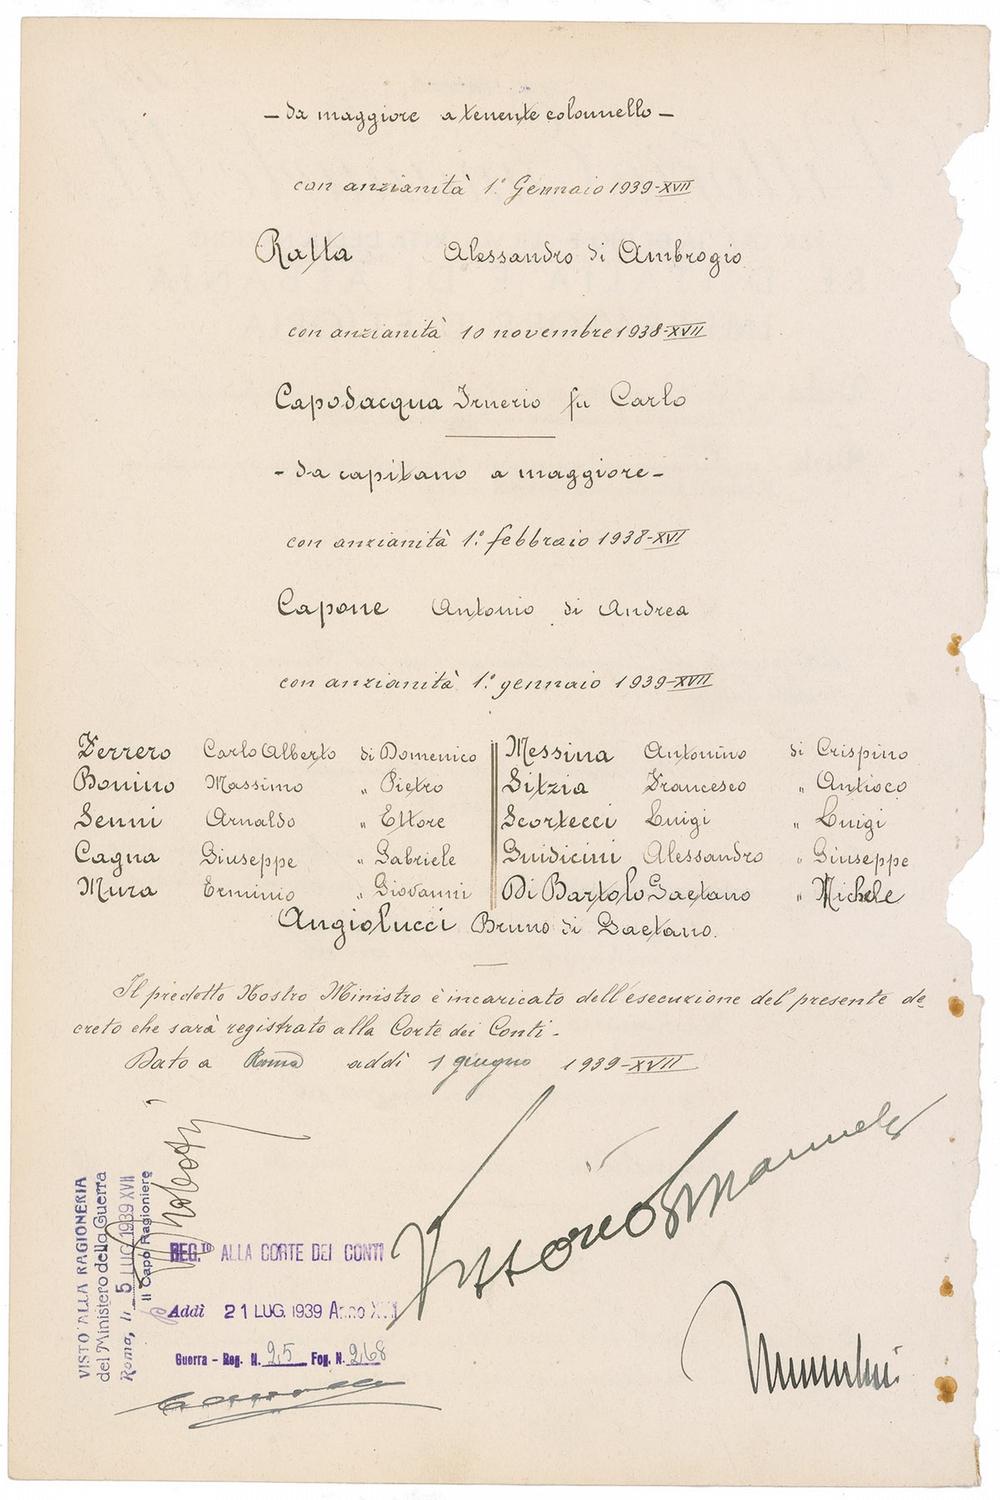 – da maggiore a tenente colonnello –
con anzianità 1° Gennaio 1939-XVII
Ratta Alessandro di Ambrogio
con anzianità 10 novembre 1938-XVII
Capodacqua Irnerio fu Carlo
- da capitano a maggiore -
con anzianità 1° febbraio 1938-XVI
Capone Antonio di Andrea
con anzianità 1° gennaio 1939-XVII
Ferrero Carlo Alberto di Domenico
Bonino Massimo " Pietro
Senni Arnaldo " Ettore
Cagna Giuseppe " Gabriele
Mura Erminio " Giovanni
Messina Antonino di Crispino
Sitzia Francesco " Antioco
Scortecci Luigi " Luigi
Guidicini Alessandro " Giuseppe
Di Bartolo Gaetano " Michele
Angiolucci Bruno di Gaetano.
Il predetto Nostro Ministro è incaricato dell'esecuzione del presente de
creto che sarà registrato alla Corte dei Conti.
Dato a Roma addì 1 giugno 1939-XVII
Vittorio Emanuele
Mussolini
VISTO ALLA RAGIONERIA
del Ministero della Guerra
Roma, lì 5 LUG. 1939 XVII
Il Capo Ragioniere
REG.TO ALLA CORTE DEI CONTI
Addì 21 LUG. 1939 Anno XVII
Guerra - Reg. N. 25 Fog. N. 268